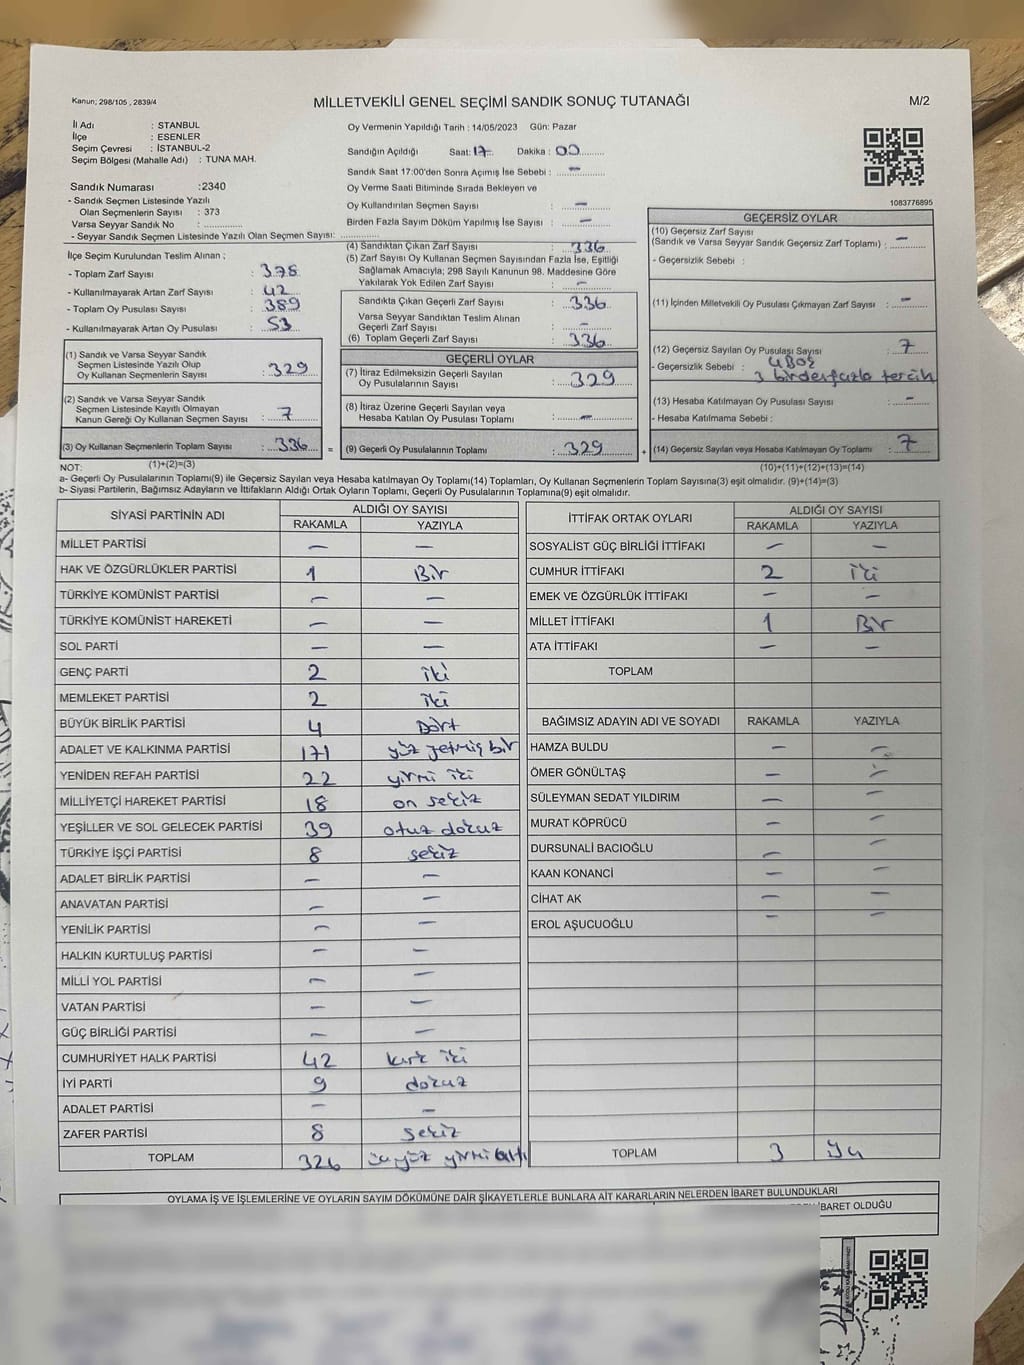 Kanun; 298/105 , 2839/4
MİLLETVEKİLİ GENEL SEÇİMİ SANDIK SONUÇ TUTANAĞI
M/2
İl Adı : STANBUL
İlçe : ESENLER
Seçim Çevresi : İSTANBUL-2
Seçim Bölgesi (Mahalle Adı) : TUNA MAH.
Sandık Numarası :2340
- Sandık Seçmen Listesinde Yazılı
Olan Seçmenlerin Sayısı : 373
Varsa Seyyar Sandık No :
- Seyyar Sandık Seçmen Listesinde Yazılı Olan Seçmen Sayısı:
İlçe Seçim Kurulundan Teslim Alınan ;
- Toplam Zarf Sayısı : 378
- Kullanılmayarak Artan Zarf Sayısı : 42
- Toplam Oy Pusulası Sayısı : 389
- Kullanılmayarak Artan Oy Pusulası : 53
(1) Sandık ve Varsa Seyyar Sandık
Seçmen Listesinde Yazılı Olup
Oy Kullanan Seçmenlerin Sayısı : 329
(2) Sandık ve Varsa Seyyar Sandık
Seçmen Listesinde Kayıtlı Olmayan
Kanun Gereği Oy Kullanan Seçmen Sayısı : 7
(3) Oy Kullanan Seçmenlerin Toplam Sayısı : 336 =
(1)+(2)=(3)
Oy Vermenin Yapıldığı Tarih : 14/05/2023 Gün: Pazar
Sandığın Açıldığı Saat: 17 Dakika : 00
Sandık Saat 17:00'den Sonra Açılmış İse Sebebi : -
Oy Verme Saati Bitiminde Sırada Bekleyen ve
Oy Kullandırılan Seçmen Sayısı : -
Birden Fazla Sayım Döküm Yapılmış İse Sayısı : -
(4) Sandıktan Çıkan Zarf Sayısı : 336
(5) Zarf Sayısı Oy Kullanan Seçmen Sayısından Fazla İse, Eşitliği
Sağlamak Amacıyla; 298 Sayılı Kanunun 98. Maddesine Göre
Yakılarak Yok Edilen Zarf Sayısı : -
Sandıkta Çıkan Geçerli Zarf Sayısı : 336
Varsa Seyyar Sandıktan Teslim Alınan
Geçerli Zarf Sayısı : -
(6) Toplam Geçerli Zarf Sayısı : 336
GEÇERLİ OYLAR
(7) İtiraz Edilmeksizin Geçerli Sayılan
Oy Pusulalarının Sayısı : 329
(8) İtiraz Üzerine Geçerli Sayılan veya
Hesaba Katılan Oy Pusulası Toplamı : -
(9) Geçerli Oy Pusulalarının Toplamı : 329 +
1083776895
GEÇERSİZ OYLAR
(10) Geçersiz Zarf Sayısı
(Sandık ve Varsa Seyyar Sandık Geçersiz Zarf Toplamı) : -
- Geçersizlik Sebebi :
(11) İçinden Milletvekili Oy Pusulası Çıkmayan Zarf Sayısı : -
(12) Geçersiz Sayılan Oy Pusulası Sayısı : 7
- Geçersizlik Sebebi : 4 Boş
3 birdenfazla tercih
(13) Hesaba Katılmayan Oy Pusulası Sayısı : -
- Hesaba Katılmama Sebebi :
(14) Geçersiz Sayılan veya Hesaba Katılmayan Oy Toplamı : 7
(10)+(11)+(12)+(13)=(14)
NOT:
a- Geçerli Oy Pusulasının Toplamı(9) ile Geçersiz Sayılan veya Hesaba katılmayan Oy Toplamı(14) Toplamları, Oy Kullanan Seçmenlerin Toplam Sayısına(3) eşit olmalıdır. (9)+(14)=(3)
b- Siyasi Partilerin, Bağımsız Adayların ve İttifakların Aldığı Ortak Oyların Toplamı, Geçerli Oy Pusulalarının Toplamına(9) eşit olmalıdır.
SİYASİ PARTİNİN ADI ALDIĞI OY SAYISI
RAKAMLA YAZIYLA
MİLLET PARTİSİ - -
HAK VE ÖZGÜRLÜKLER PARTİSİ 1 Bir
TÜRKİYE KOMÜNİST PARTİSİ - -
TÜRKİYE KOMÜNİST HAREKETİ - -
SOL PARTİ - -
GENÇ PARTİ 2 iki
MEMLEKET PARTİSİ 2 iki
BÜYÜK BİRLİK PARTİSİ 4 Dört
ADALET VE KALKINMA PARTİSİ 171 yüz yetmiş bir
YENİDEN REFAH PARTİSİ 22 yirmi iki
MİLLİYETÇİ HAREKET PARTİSİ 18 on sekiz
YEŞİLLER VE SOL GELECEK PARTİSİ 39 otuz dokuz
TÜRKİYE İŞÇİ PARTİSİ 8 sekiz
ADALET BİRLİK PARTİSİ - -
ANAVATAN PARTİSİ - -
YENİLİK PARTİSİ - -
HALKIN KURTULUŞ PARTİSİ - -
MİLLİ YOL PARTİSİ - -
VATAN PARTİSİ - -
GÜÇ BİRLİĞİ PARTİSİ - -
CUMHURİYET HALK PARTİSİ 42 kırk iki
İYİ PARTİ 9 dokuz
ADALET PARTİSİ - -
ZAFER PARTİSİ 8 sekiz
TOPLAM 326 üçyüz yirmi altı
İTTİFAK ORTAK OYLARI ALDIĞI OY SAYISI
RAKAMLA YAZIYLA
SOSYALİST GÜÇ BİRLİĞİ İTTİFAKI - -
CUMHUR İTTİFAKI 2 iki
EMEK VE ÖZGÜRLÜK İTTİFAKI - -
MİLLET İTTİFAKI 1 Bir
ATA İTTİFAKI - -
TOPLAM
BAĞIMSIZ ADAYIN ADI VE SOYADI RAKAMLA YAZIYLA
HAMZA BULDU - -
ÖMER GÖNÜLTAŞ - -
SÜLEYMAN SEDAT YILDIRIM - -
MURAT KÖPRÜCÜ - -
DURSUNALİ BACIOĞLU - -
KAAN KONANCİ - -
CİHAT AK - -
EROL AŞUCUOĞLU - -
TOPLAM 3 üç
OYLAMA İŞ VE İŞLEMLERİNE VE OYLARIN SAYIM DÖKÜMÜNE DAİR ŞİKAYETLERLE BUNLARA AİT KARARLARIN NELERDEN İBARET BULUNDUKLARI
İBARET OLDUĞU